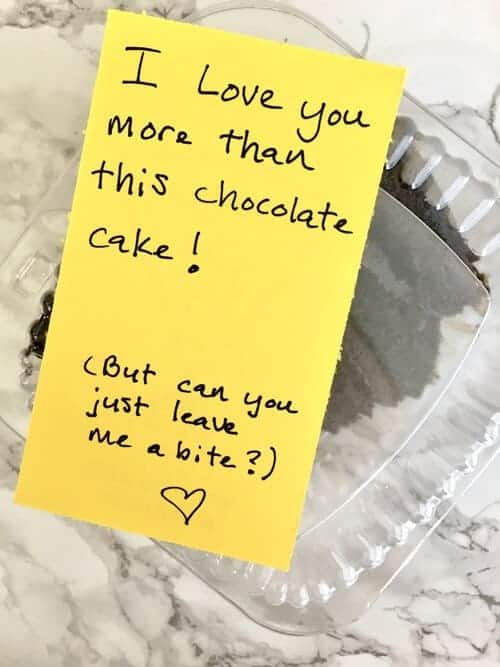 I Love you
more than
this chocolate
cake!
(But can you
just leave
me a bite?)